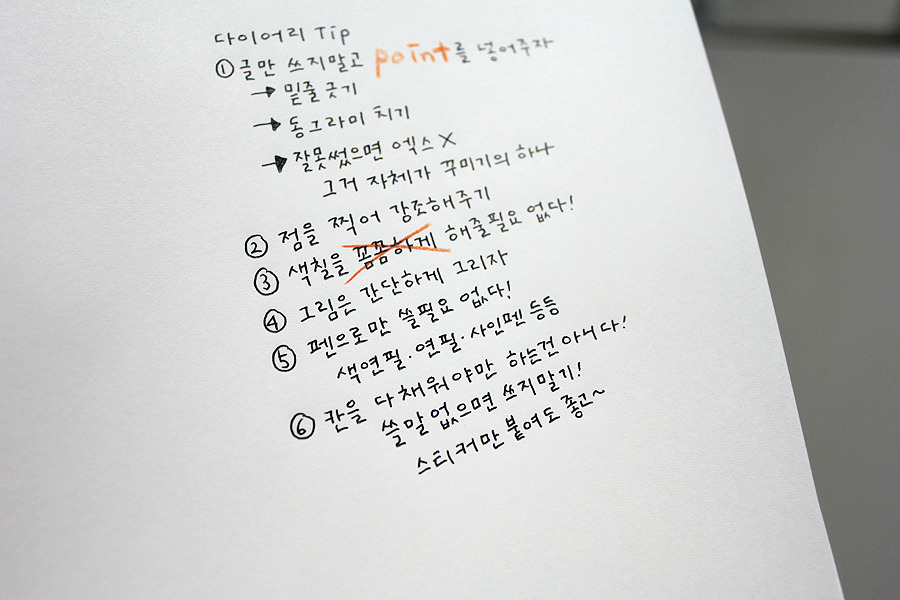 다이어리 Tip
① 글만 쓰지말고 point를 넣어주자
→ 밑줄 긋기
→ 동그라미 치기
→ 잘못썼으면 엑스 X
그거 자체가 꾸미기의 하나
② 점을 찍어 강조해주기
③ 색칠을 꼼꼼하게 해줄필요 없다!
④ 그림은 간단하게 그리자
⑤ 펜으로만 쓸필요 없다!
색연필·연필·사인펜 등등
⑥ 칸을 다채워야만 하는건 아니다!
쓸말 없으면 쓰지말기!
스티커만 붙여도 좋고~